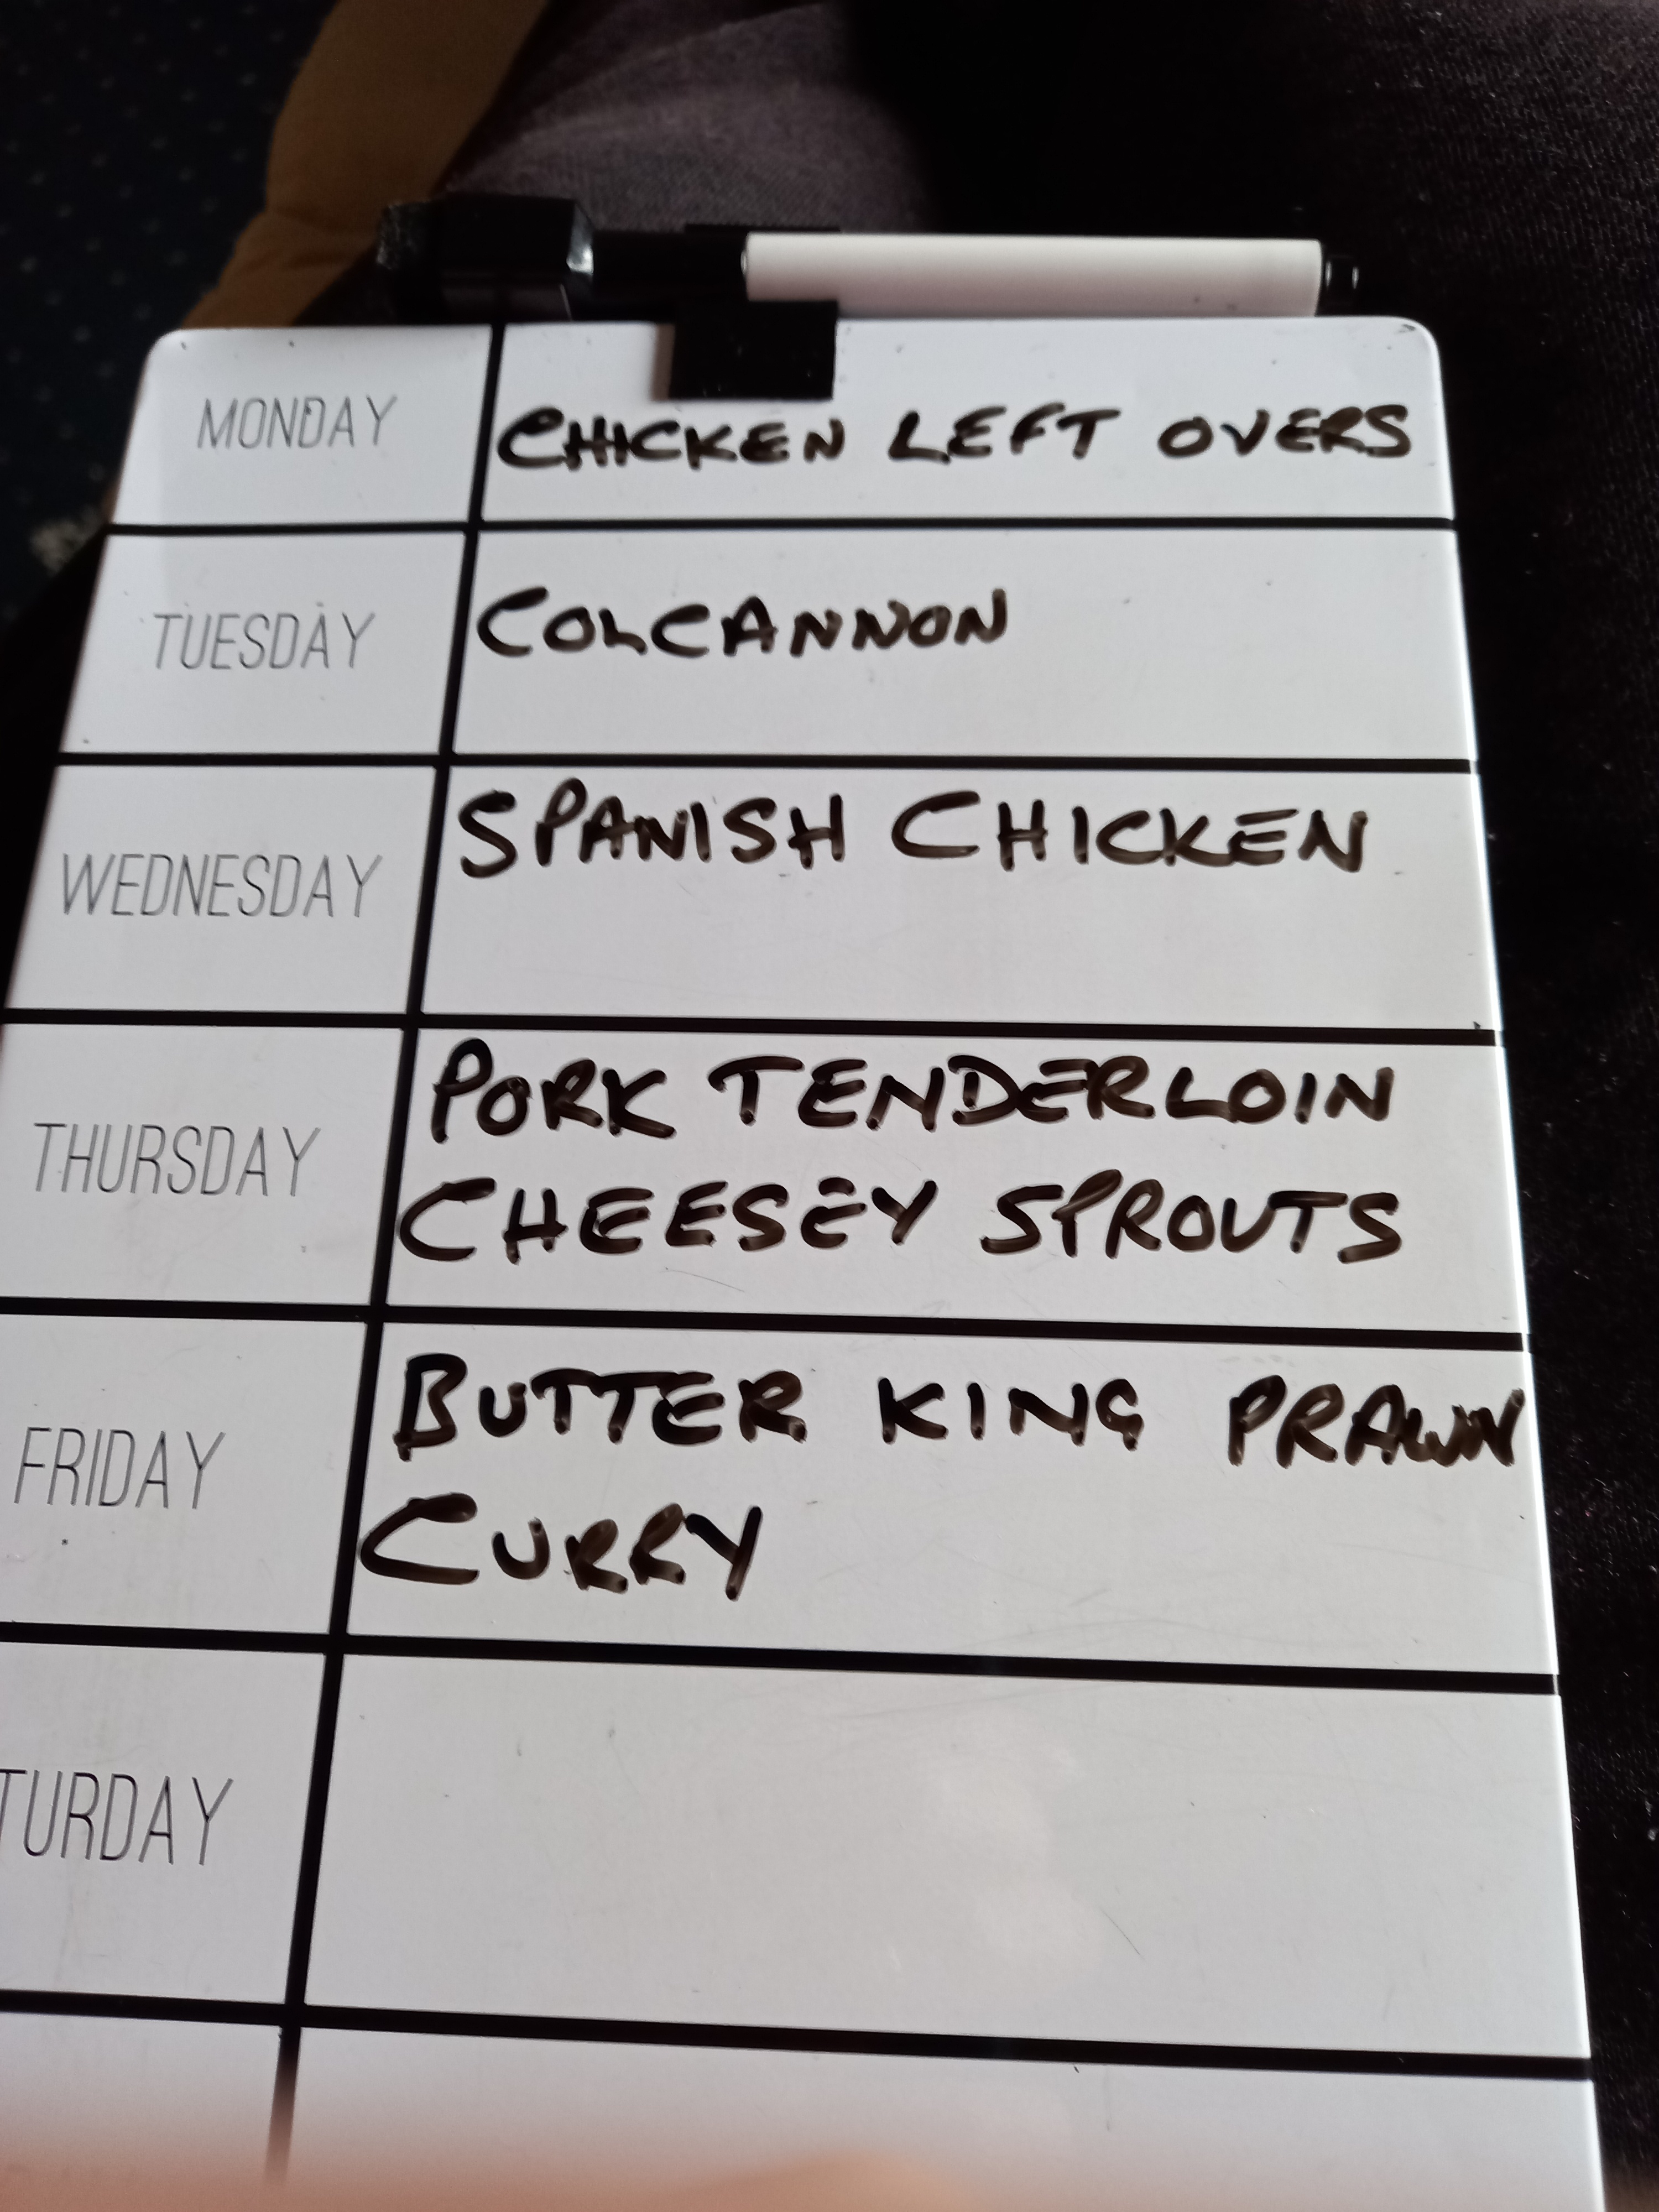 MONDAY
CHICKEN LEFT OVERS
TUESDAY
COLCANNON
WEDNESDAY
SPANISH CHICKEN
THURSDAY
PORK TENDERLOIN
CHEESEY SPROUTS
FRIDAY
BUTTER KING PRAWN
CURRY
TURDAY